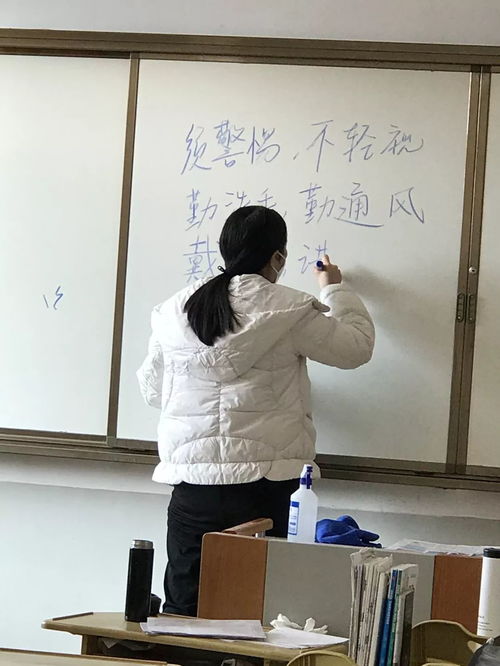 须警惕,不轻视
勤洗手,勤通风
戴 讲